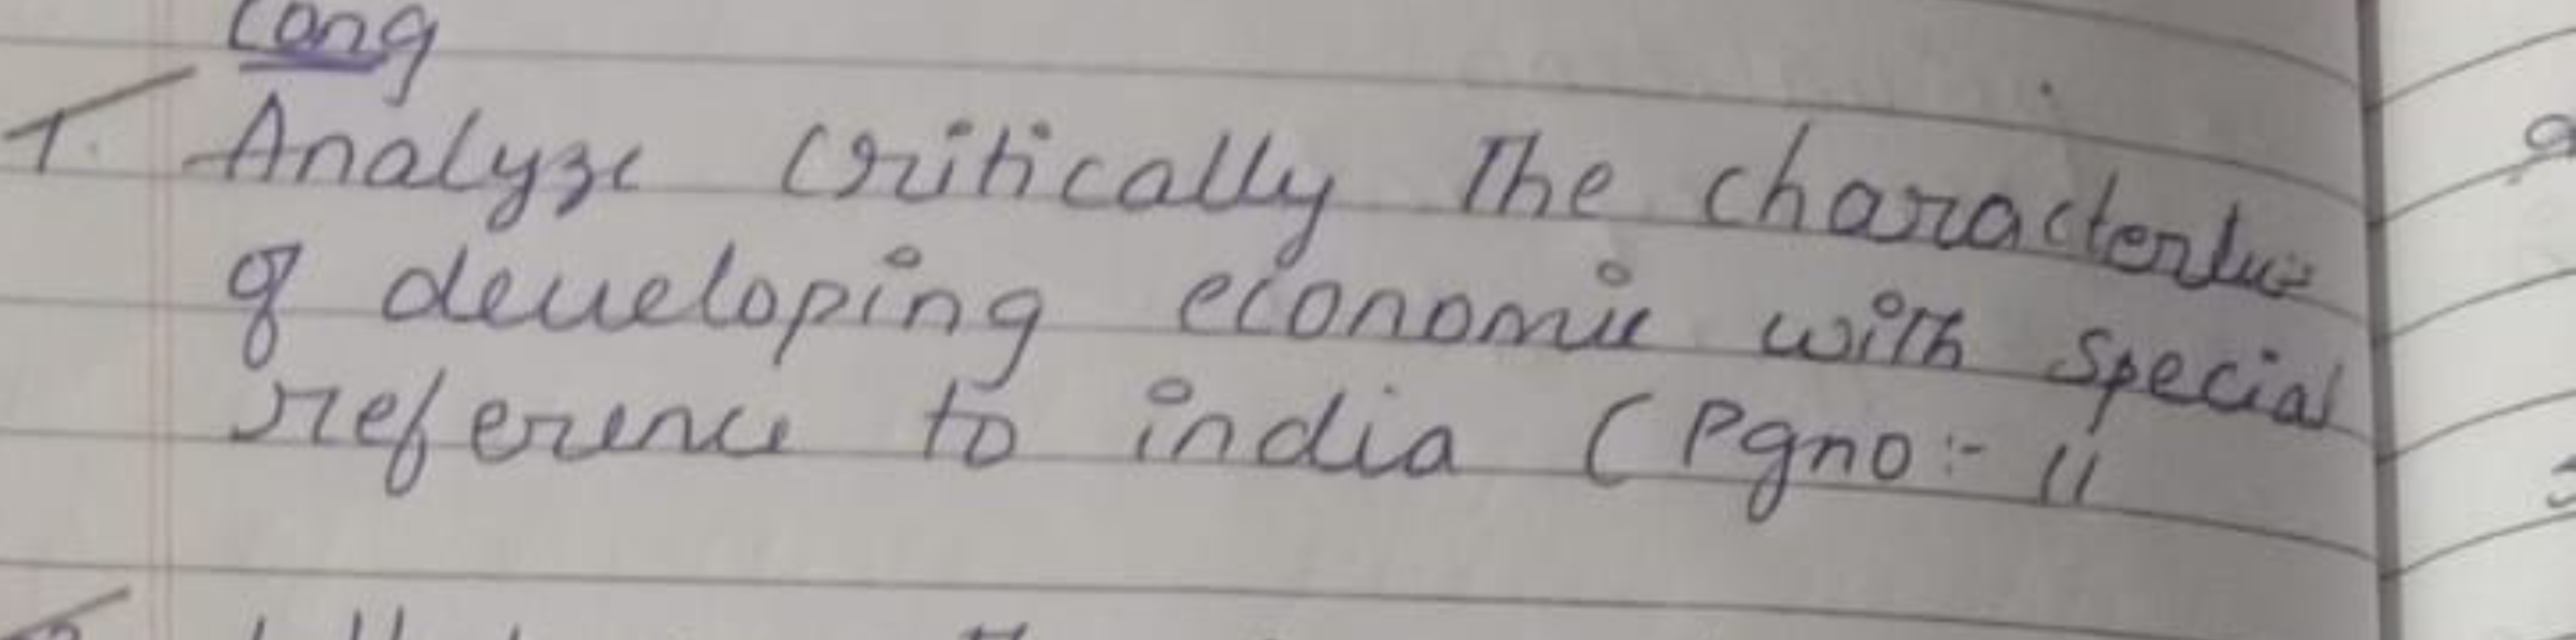 Long
1. Analyze critically The characteristics
of developing economic with special
reference to india (Pgno:- 11